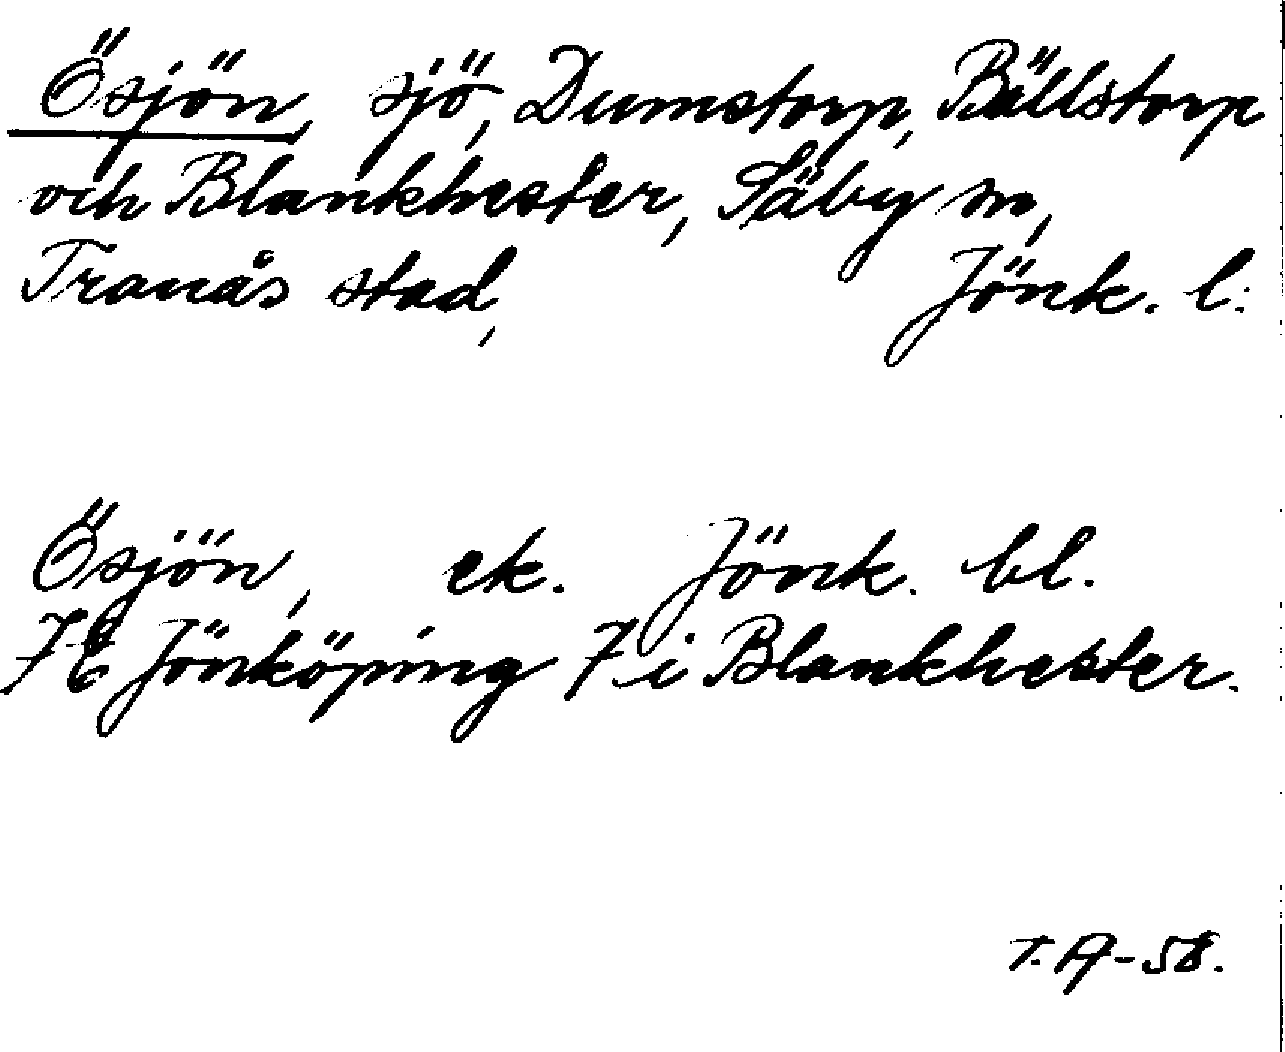 Ösjön, sjö, Dumstorp, Bällstorp
och Blankhester, Säby sn,
Tranås stad, Jönk. l.
Ösjön, ek. Jönk. bl.
7E Jönköping 7 i Blankhester.
T.A-58.